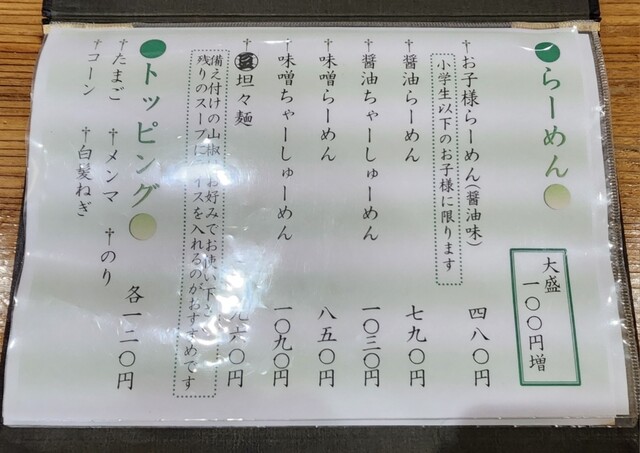 ●らーめん●
大盛
一〇〇円増
†お子様らーめん(醤油味) 四八〇円
小学生以下のお子様に限ります
†醤油らーめん 七九〇円
†醤油ちゃーしゅーめん 一〇三〇円
†味噌らーめん 八五〇円
†味噌ちゃーしゅーめん 一〇九〇円
†坦々麺 九六〇円
備え付けの山椒はお好みでお使い下さい
残りのスープにライスを入れるのがおすすめです
●トッピング●
†たまご †メンマ †のり 各一二〇円
†コーン †白髪ねぎ